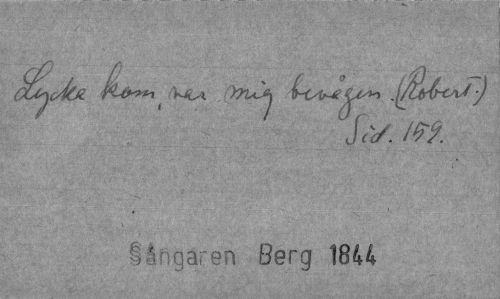 Lycka kom, var mig bevågen. (Robert.)
Sid. 159.
Sångaren Berg 1844